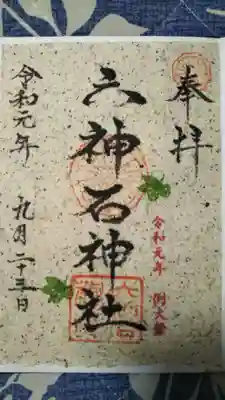 奉拝
六神石神社
令和元年 例大祭
令和元年 九月二十三日